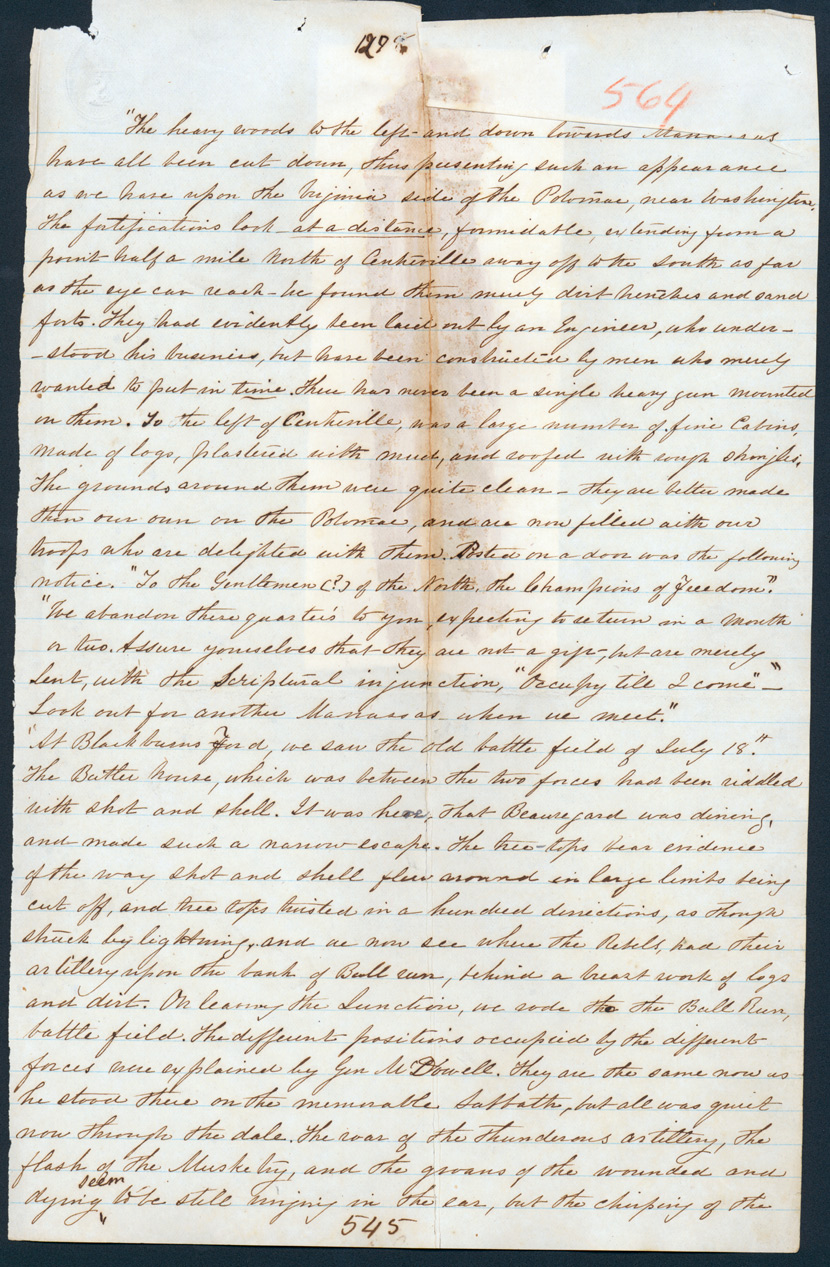 129
564
"The heavy woods to the left and down towards Manassas
have all been cut down, thus presenting such an appearance
as we have upon the Virginia side of the Potomac, near Washington.
The fortifications look at a distance, formidable, extending from a
point half a mile North of Centreville away off to the South as far
as the eye can reach - We found them merely dirt trenches and sand
forts. They had evidently been laid out by an Engineer, who under-
-stood his business, but have been constructed by men who merely
wanted to put in time. There has never been a single heavy gun mounted
on them. To the left of Centreville, was a large number of fine Cabins,
made of logs, plastered with mud, and roofed with rough shingles.
The grounds around them were quite clean - They are better made
than our own on the Potomac, and are now filled with our
troops who are delighted with them. Posted on a door was the following
notice. "To the Gentlemen (?) of the North, the Champions of Freedom".
"We abandon these quarters to you, expecting to return in a month
or two. Assure yourselves that they are not a gift, but are merely
lent, with the Scriptural injunction, "Occupy till I come" -
Look out for another Manassas when we meet."
"At Blackburns Ford, we saw the old battle field of July 18".
The Butler House, which was between the two forces had been riddled
with shot and shell. It was here, that Beauregard was dining,
and made such a narrow escape. The tree-tops bear evidence
of the way shot and shell flew around in large limbs being
cut off, and tree tops twisted in a hundred dirrections, as though
struck by lightning, and we now see where the Rebels, had their
artillery upon the bank of Bull run, behind a breast work of logs
and dirt. On leaving the Junction, we rode the the Bull Run,
battle field. The different positions occupied by the different
forces were explained by Gen McDowell. They are the same now as
he stood there on the memorable Sabbath, but all was quiet
now through the dale. The roar of the thunderous artillery, the
flash of the Musketry, and the groans of the wounded and
seem
dying to be still ringing in the ear, but the chirping of the
545